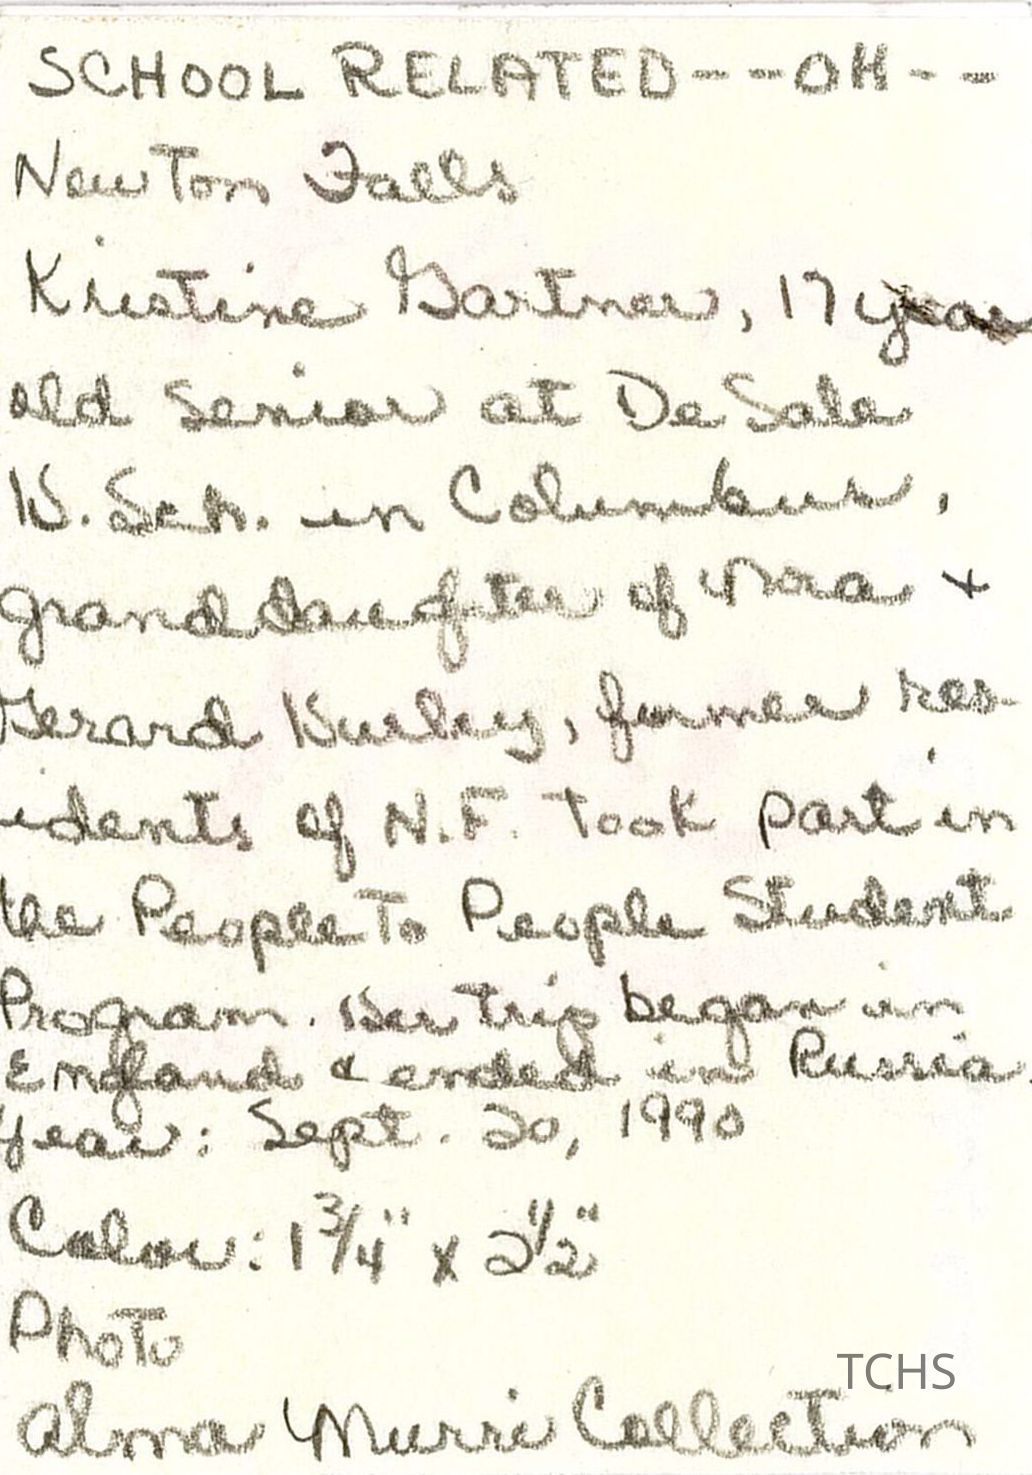 SCHOOL RELATED---OH--
Newton Falls
Kristine Gartner, 17 year
old senior at De Sale
H. Sch. in Columbus,
granddaughter of +
Gerard Hurley, former res-
idents of N.F. took part in
the People To People Student
Program. Her trip began in
England & ended in Russia.
Year: Sept. 20, 1990
Color: 1 3/4" x 2 1/2"
Photo
TCHS
Alma Murri Collection